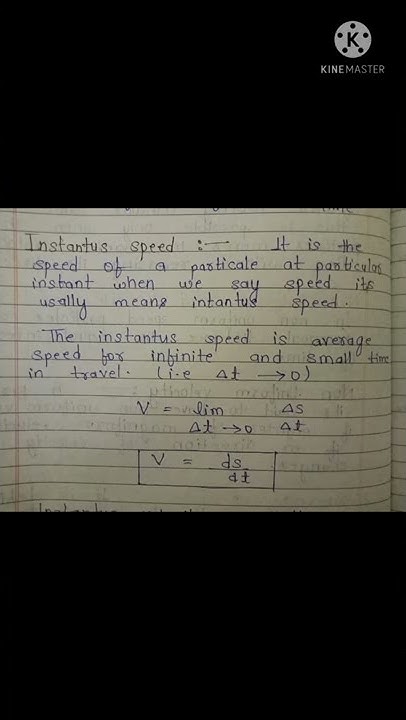 K
KINEMASTER
Instantus speed :— It is the
speed of a particale at particular
instant when we say speed its
usally means intantus speed.
The instantus speed is average
speed for infinite and small time
in travel. (i.e Δt → 0)
V = lim Δs
Δt → 0 Δt
V = ds
dt